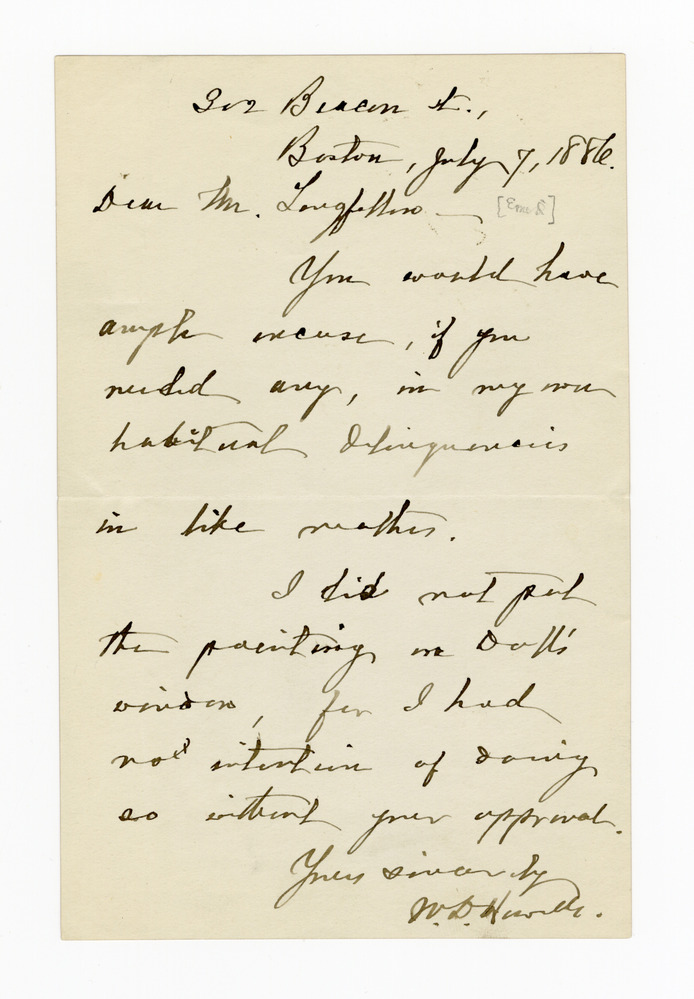 302 Beacon st.,
Boston, July 7, 1886.
Dear Mr. Longfellow
[Ernest]
You would have
ample excuse, if you
needed any, in my own
habitual delinquencies
in like matters.
I did not put
the painting in Doll's
window, for I had
not intention of doing
so without your approval.
Yours sincerely
W. D. Howells.